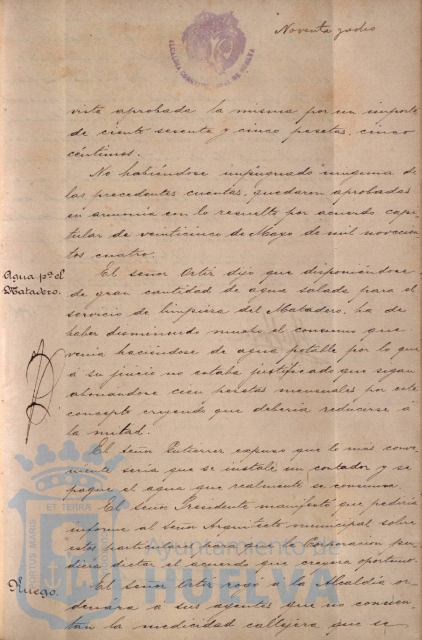 Noventa y ocho
ALCALDIA CONSTITUCIONAL DE HUELVA
viste aprobada la misma por un importe
de ciento sesenta y cinco pesetas, cinco
céntimos.
No habiéndose impugnado ninguna de
las precedentes cuentas, quedaron aprobadas
en armonía con lo resuelto por acuerdo capi-
tular de veinticinco de Mayo de mil novecien-
tos cuatro.
Agua pª el
Matadero.
El señor Ortiz dijo que disponiéndose
de gran cantidad de agua salada para el
servicio de limpieza del Matadero, ha de
haber disminuido mucho el consumo que
venía haciéndose de agua potable por lo que
á su juicio no estaba justificado que sigan
abonándose cien pesetas mensuales por este
concepto creyendo que debería reducirse á
la mitad.
El señor Gutierrez expuso que lo más conve-
niente sería que se instale un contador y se
pague el agua que realmente se consuma.
El señor Presidente manifestó que pediría
informe al señor Arquitecto municipal sobre
estos particulares para que la Corporacion pu-
diera dictar el acuerdo que creyera oportuno.
Ruego.
El señor Ortiz rogó á la Alcaldía or-
denara a sus agentes que no consien-
tan la mendicidad callejera que se
PORTUS MARIS ET TERRÆ
Ayuntamiento de
HUELVA